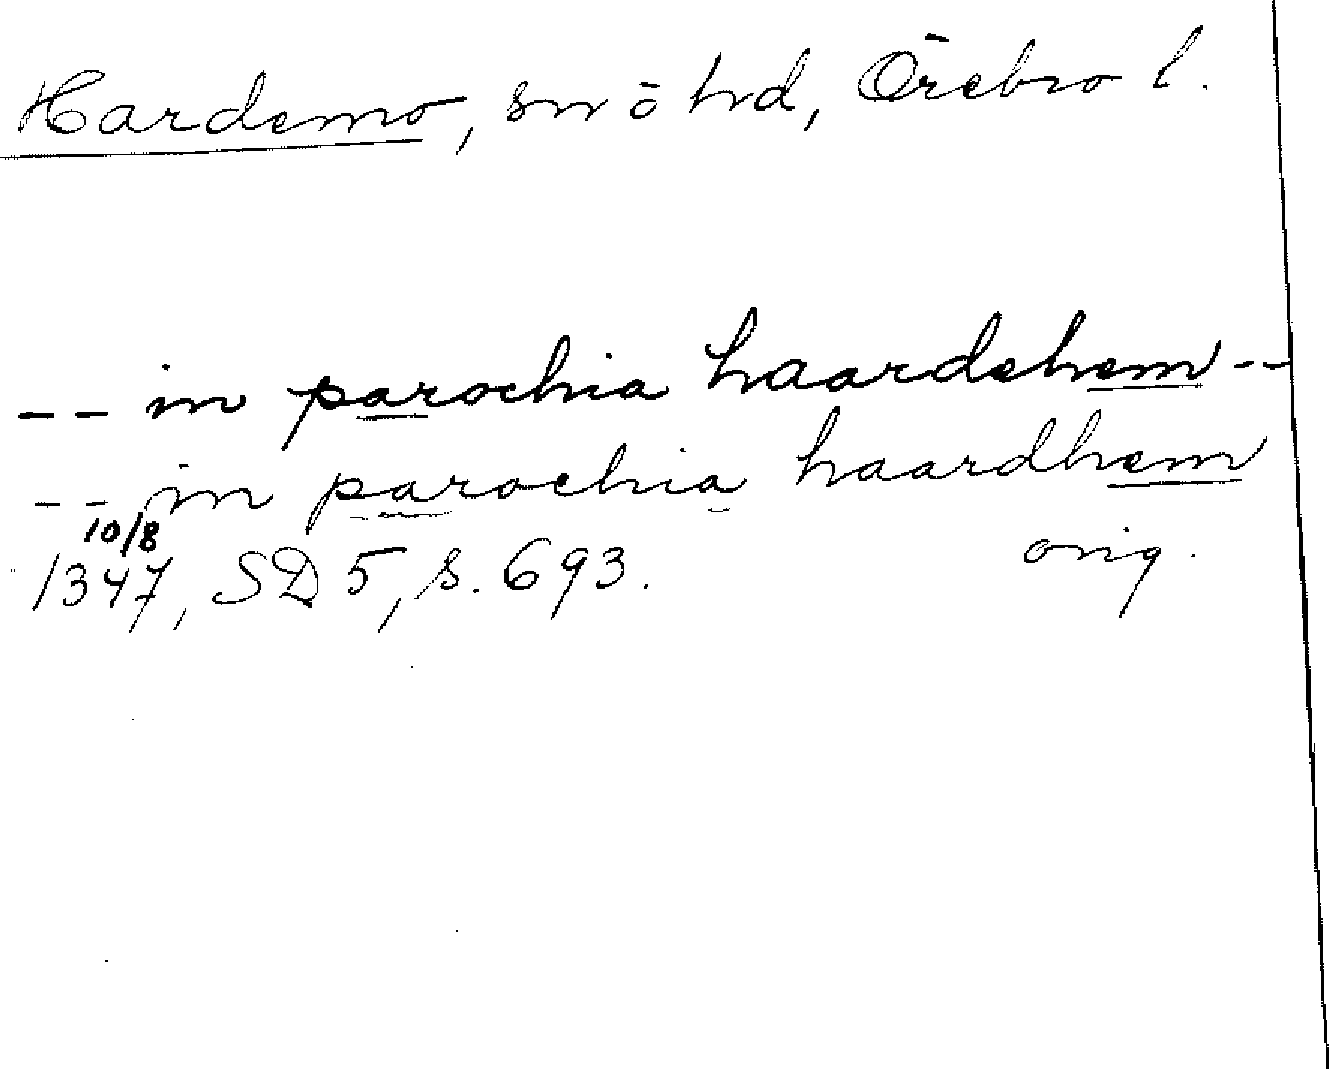 Hardemo, sn ō hd, Örebro l.
-- in parochia haardehem --
-- in parochia haardhem
10/8
1347, SD 5, s. 693. orig.